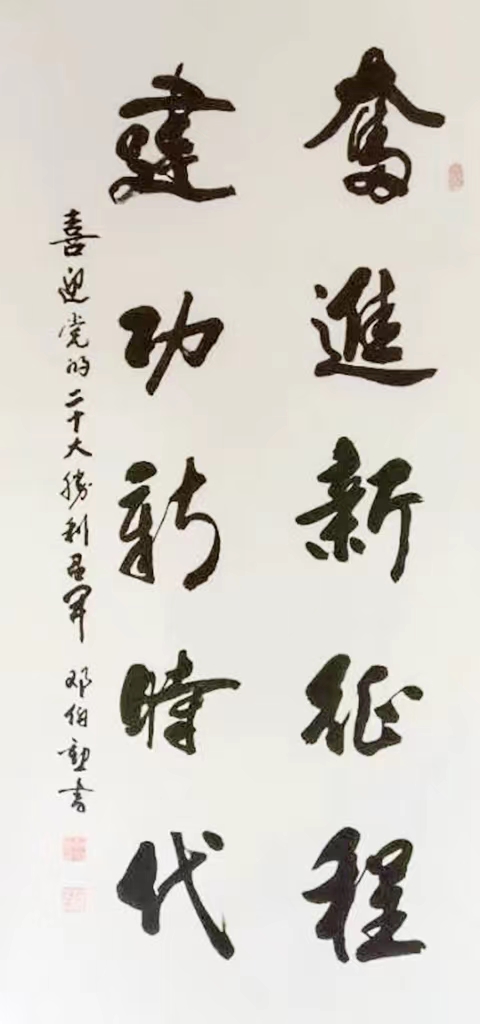 奮進新征程
建功新時代
喜迎党的二十大勝利召開 邓伯勳書